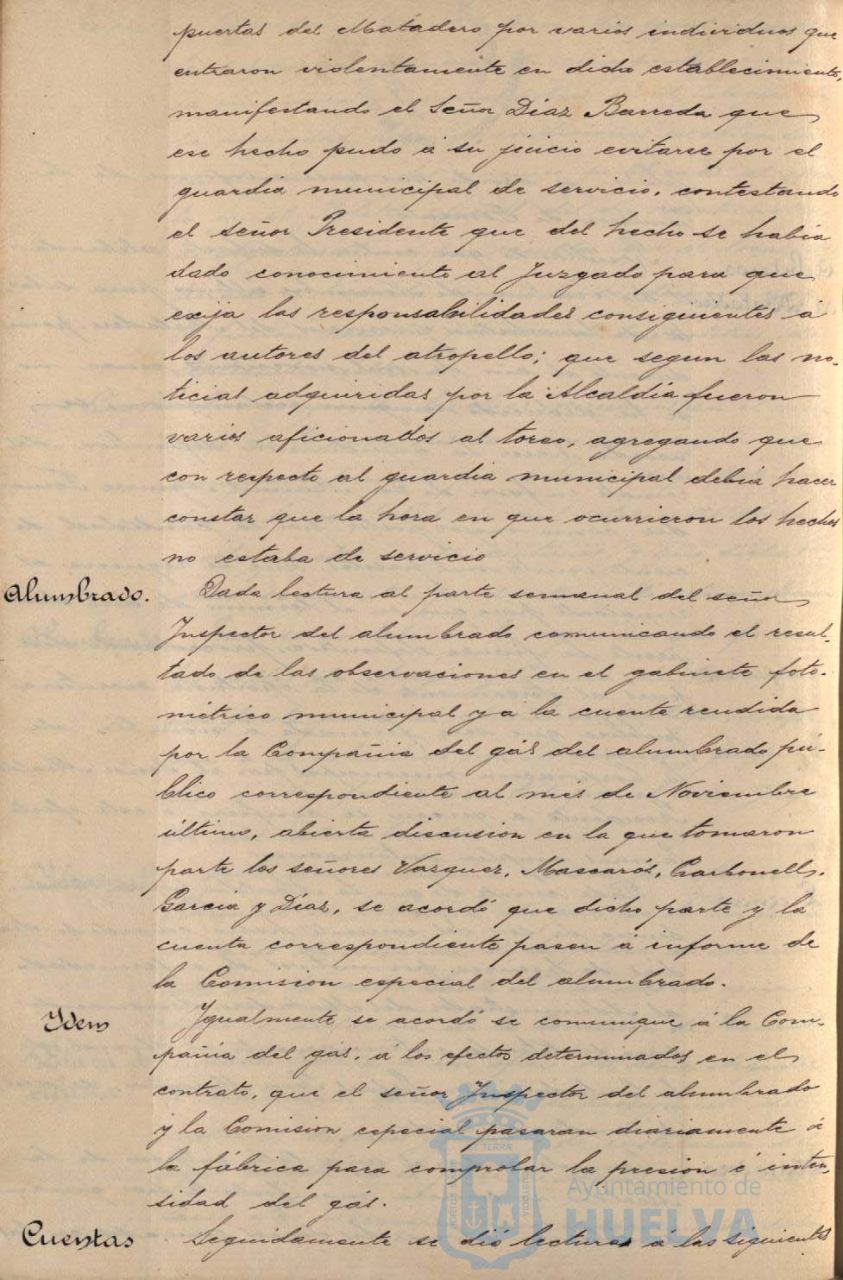 puertas del Matadero por varios individuos que
entraron violentamente en dicho establecimiento,
manifestando el Señor Díaz Barreda que
ese hecho pudo á su juicio evitarse por el
guardia municipal de servicio, contestando
el señor Presidente que del hecho se había
dado conocimiento al Juzgado para que
exija las responsabilidades consiguientes á
los autores del atropello; que segun las no-
ticias adquiridas por la Alcaldía fueron
varios aficionados al toreo, agregando que
con respecto al guardia municipal debia hacer
constar que la hora en que ocurrieron los hechos
no estaba de servicio
Alumbrado. Dada lectura al parte semanal del señor
Inspector del alumbrado comunicando el resul-
tado de las observaciones en el gabinete foto-
métrico municipal y á la cuenta rendida
por la Compañia del gás del alumbrado pú-
blico correspondiente al més de Noviembre
último, abierta discusion en la que tomaron
parte los señores Vazquez, Mascarós, Carbonell,
Garcia y Díaz, se acordó que dicho parte y la
cuenta correspondiente pasen á informe de
la Comision especial del alumbrado.
Idem Igualmente se acordó se comunique á la Com-
pañia del gás, á los efectos determinados en el
contrato, que el señor Inspector del alumbrado
y la Comision especial pasaran diariamente á
la fábrica para comprobar la presion é inten-
sidad del gás.
Cuentas Seguidamente se dió lectura á las siguientes
Ayuntamiento de
HUELVA